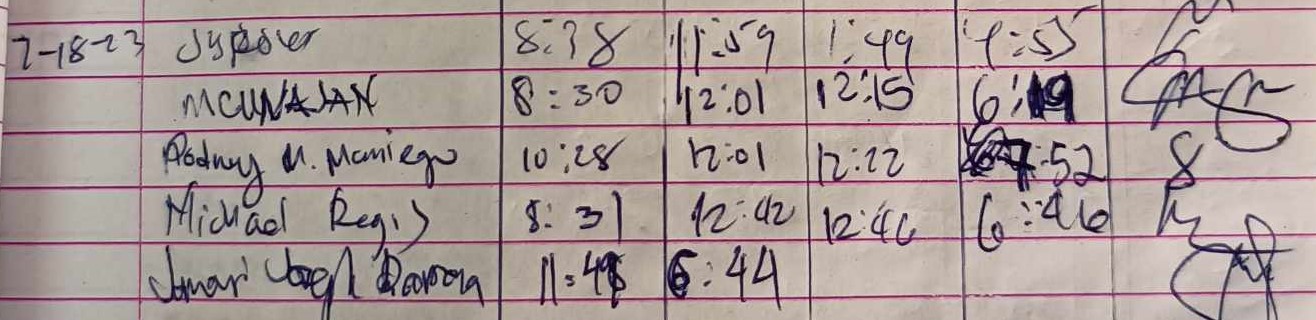 7-18-23 8:38 11:59 1:49 4:55
MCUNAJAN 8:30 12:01 12:15 6:19
Rodney M. Maniego 10:28 12:01 12:22 7:52
Michael Regis 8:31 12:42 12:46 6:46
11:45 6:44